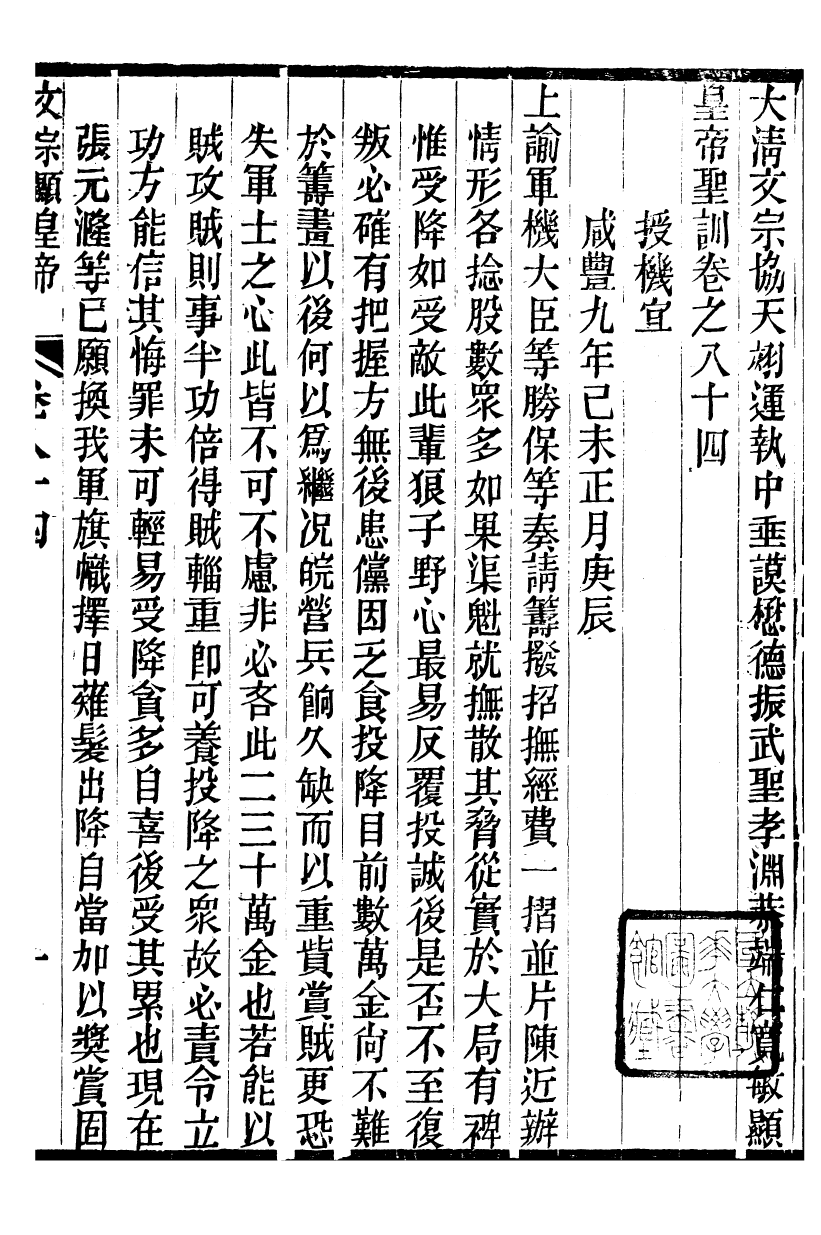 大淸文宗協天翊運執中垂謨懋德振武聖孝淵恭端仁寬敏顯
皇帝聖訓卷之八十四
授機宜
咸豐九年己未正月庚辰
上諭軍機大臣等勝保等奏請籌撥招撫經費一摺並片陳近辦
情形各捻股數衆多如果渠魁就撫散其脅從實於大局有裨
惟受降如受敵此輩狼子野心最易反覆投誠後是否不至復
叛必確有把握方無後患儻因乏食投降目前數萬金尙不難
於籌畫以後何以爲繼况皖營兵餉久缺而以重貲賞賊更恐
失軍士之心此皆不可不慮非必吝此二三十萬金也若能以
賊攻賊則事半功倍得賊輜重卽可養投降之衆故必責令立
功方能信其悔罪未可輕易受降貪多自喜後受其累也現在
張元漋等已願換我軍旗幟擇日薙髮出降自當加以獎賞固
文宗顯皇帝
卷八十四
一